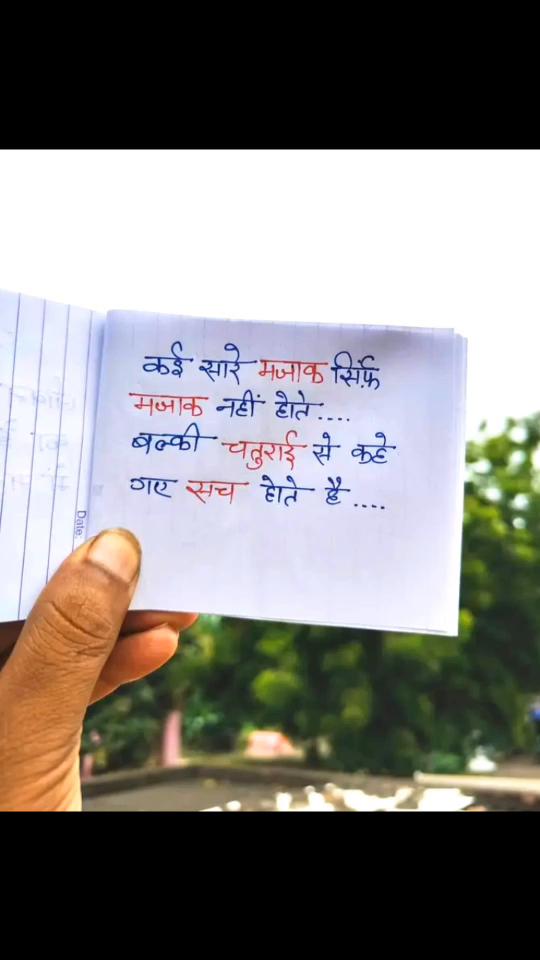 कई सारे मजाक सिर्फ़
मजाक नहीं होते....
बल्की चतुराई से कहे
गए सच होते है....
Date: